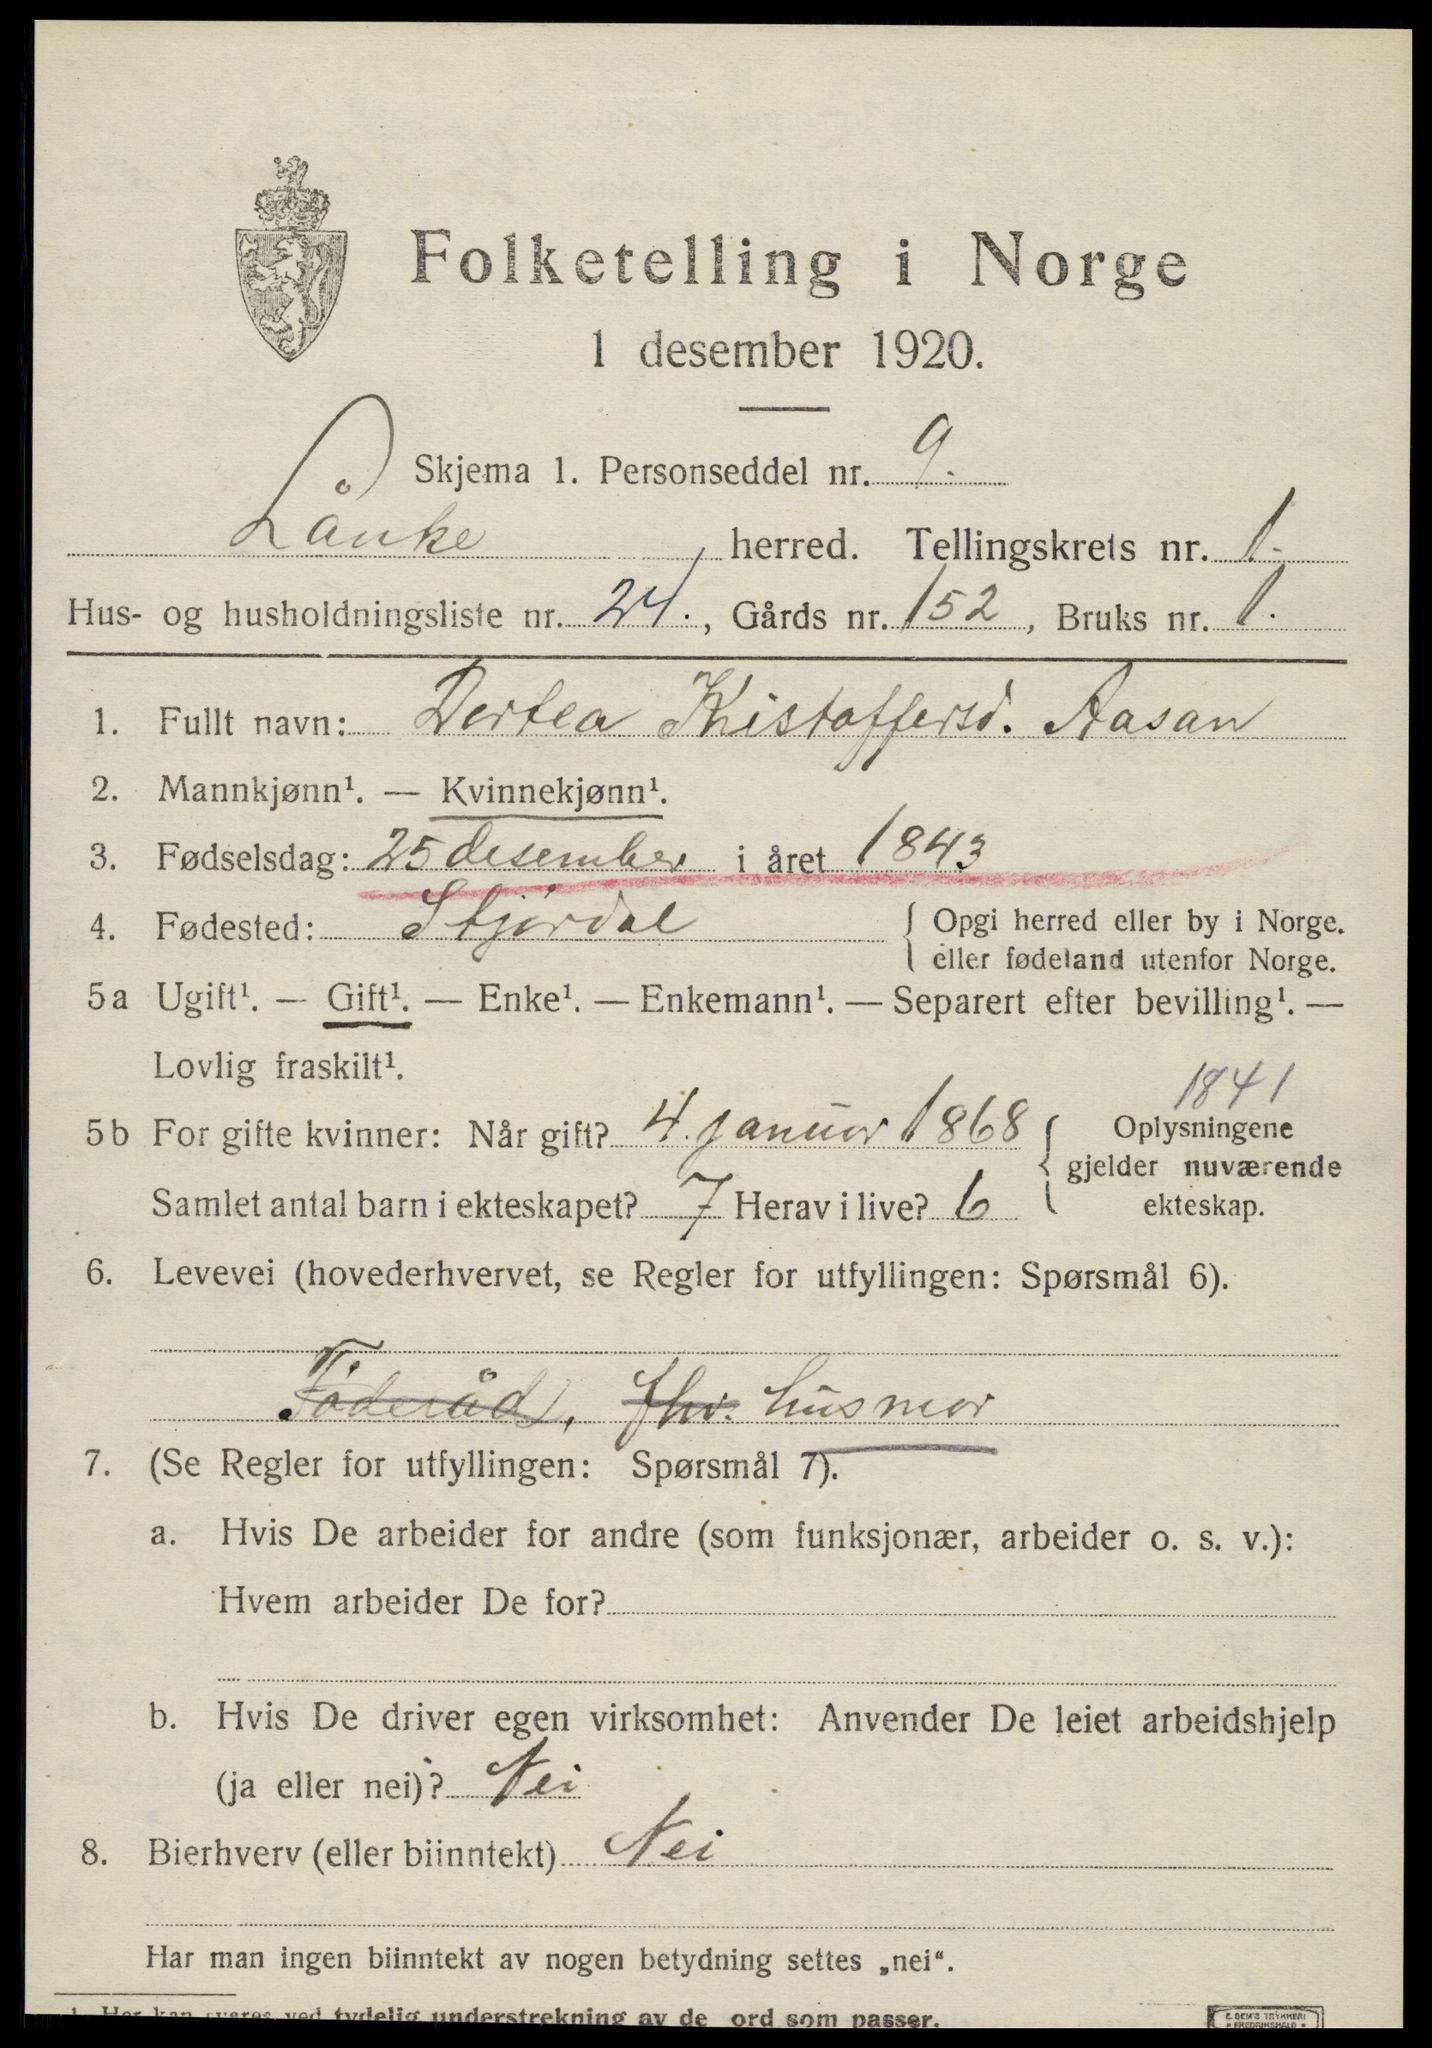 Folketelling i Norge
1 desember 1920.
Skjema 1. Personseddel nr. 9.
Lånke herred. Tellingskrets nr. 1.
Hus- og husholdningsliste nr. 24., Gårds nr. 152, Bruks nr. 1.
1. Fullt navn: Dortea Kristoffersd. Aasan
2. Mannkjønn¹. — Kvinnekjønn¹.
3. Fødselsdag: 25 desember i året 1843
4. Fødested: Stjørdal { Opgi herred eller by i Norge.
eller fødeland utenfor Norge.
5a Ugift¹. — Gift¹. — Enke¹. — Enkemann¹. — Separert efter bevilling¹. —
Lovlig fraskilt¹.
1841
5b For gifte kvinner: Når gift? 4. januar 1868 { Oplysningene
gjelder nuværende
Samlet antal barn i ekteskapet? 7 Herav i live? 6 ekteskap.
6. Levevei (hovederhvervet, se Regler for utfyllingen: Spørsmål 6).
Føderåd, fhv. husmor
7. (Se Regler for utfyllingen: Spørsmål 7).
a. Hvis De arbeider for andre (som funksjonær, arbeider o. s. v.):
Hvem arbeider De for?
b. Hvis De driver egen virksomhet: Anvender De leiet arbeidshjelp
(ja eller nei)? Nei
8. Bierhverv (eller biinntekt) Nei
Har man ingen biinntekt av nogen betydning settes „nei“.
¹ Her kan svares ved tydelig understrekning av de ord som passer.
E. SEM'S TRYKKERI
FREDRIKSHALD